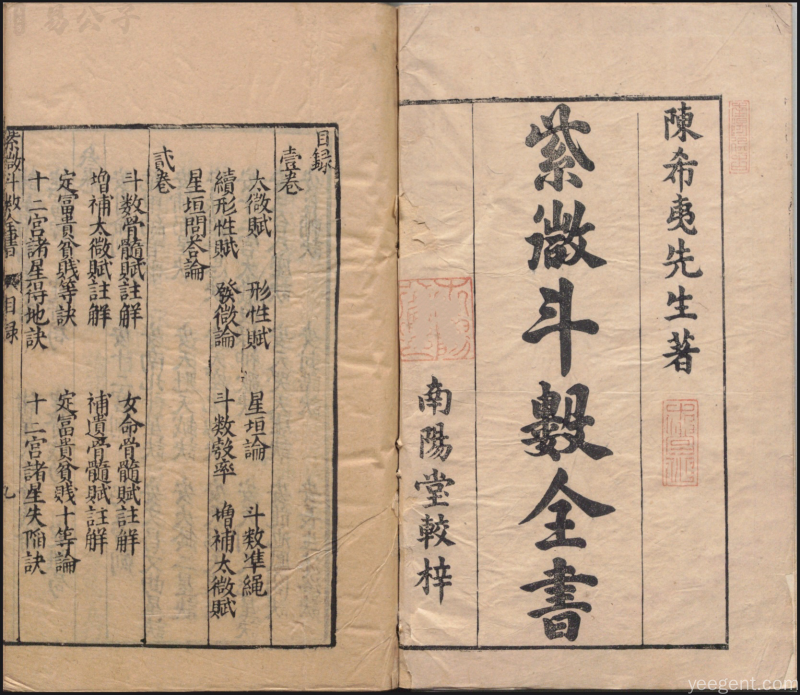 陳希夷先生著
紫微斗數全書
南陽堂較梓
目録
壹卷
太微賦 形性賦 星垣論 斗数準繩
續形性賦 發微論 斗数彀率 增補太微賦
星垣問荅論
貳卷
斗数骨髓賦註解 女命骨髓賦註解
增補太微賦註解 補遺骨髓賦註解
定富貴貧賤等訣 定富貴貧賤十等論
十二宮諸星得地訣 十二宮諸星失陷訣
紫微斗数全書 目録 九
易公子
yeegent.com